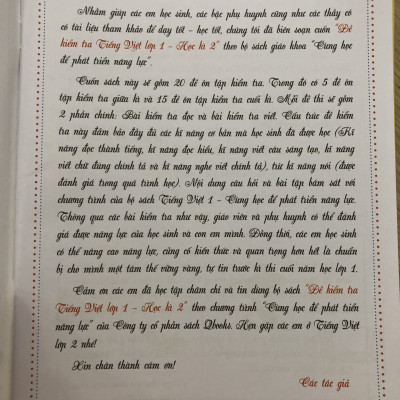 Nhằm giúp các em học sinh, các bậc phụ huynh cũng như các thầy cô
có tài liệu tham khảo để dạy tốt - học tốt, chúng tôi đã biên soạn cuốn "Đề
kiểm tra Tiếng Việt lớp 1 - Học kì 2" theo bộ sách giáo khoa "Cùng học
để phát triển năng lực".
Cuốn sách này sẽ gồm 20 đề ôn tập kiểm tra. Trong đó có 5 đề ôn
tập kiểm tra giữa kì và 15 đề ôn tập kiểm tra cuối kì. Mỗi đề thi sẽ gồm
2 phần chính: Bài kiểm tra đọc và bài kiểm tra viết. Cấu trúc đề kiểm
tra này đảm bảo đầy đủ các kĩ năng cơ bản mà học sinh đã được học (Kĩ
năng đọc thành tiếng, kĩ năng đọc hiểu, kĩ năng viết câu sáng tạo, kĩ năng
viết chữ đúng chính tả và kĩ năng nghe viết chính tả), trừ kĩ năng nói (được
đánh giá trong quá trình học). Nội dung câu hỏi và bài tập bám sát với
chương trình của bộ sách Tiếng Việt 1 - Cùng học để phát triển năng lực.
Thông qua các bài kiểm tra như vậy, giáo viên và phụ huynh có thể đánh
giá được năng lực của học sinh và con em mình. Đồng thời, các em học sinh
có thể nâng cao năng lực, củng cố kiến thức và quan trọng hơn hết là chuẩn
bị cho mình một tâm thế vững vàng, tự tin trước kì thi cuối năm học lớp 1.
Cảm ơn các em đã học tập chăm chỉ và tin dùng bộ sách "Đề kiểm tra
Tiếng Việt lớp 1 - Học kì 2" theo chương trình "Cùng học để phát triển
năng lực" của Công ty cổ phần sách Qbooks. Hẹn gặp các em ở Tiếng Việt
lớp 2 nhé!
Xin chân thành cảm ơn!
Các tác giả